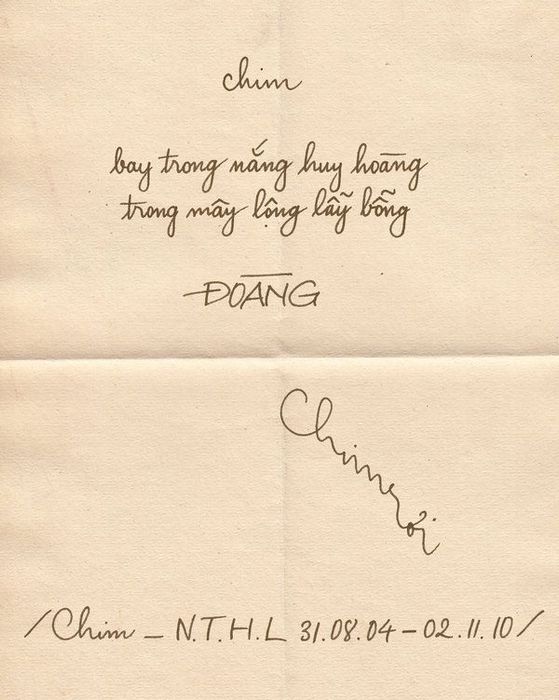 chim
bay trong nắng huy hoàng
trong mây lộng lẫy bỗng
ĐOÀNG
Chim rơi
/Chim - N.T.H.L 31.08.04 - 02.11.10/